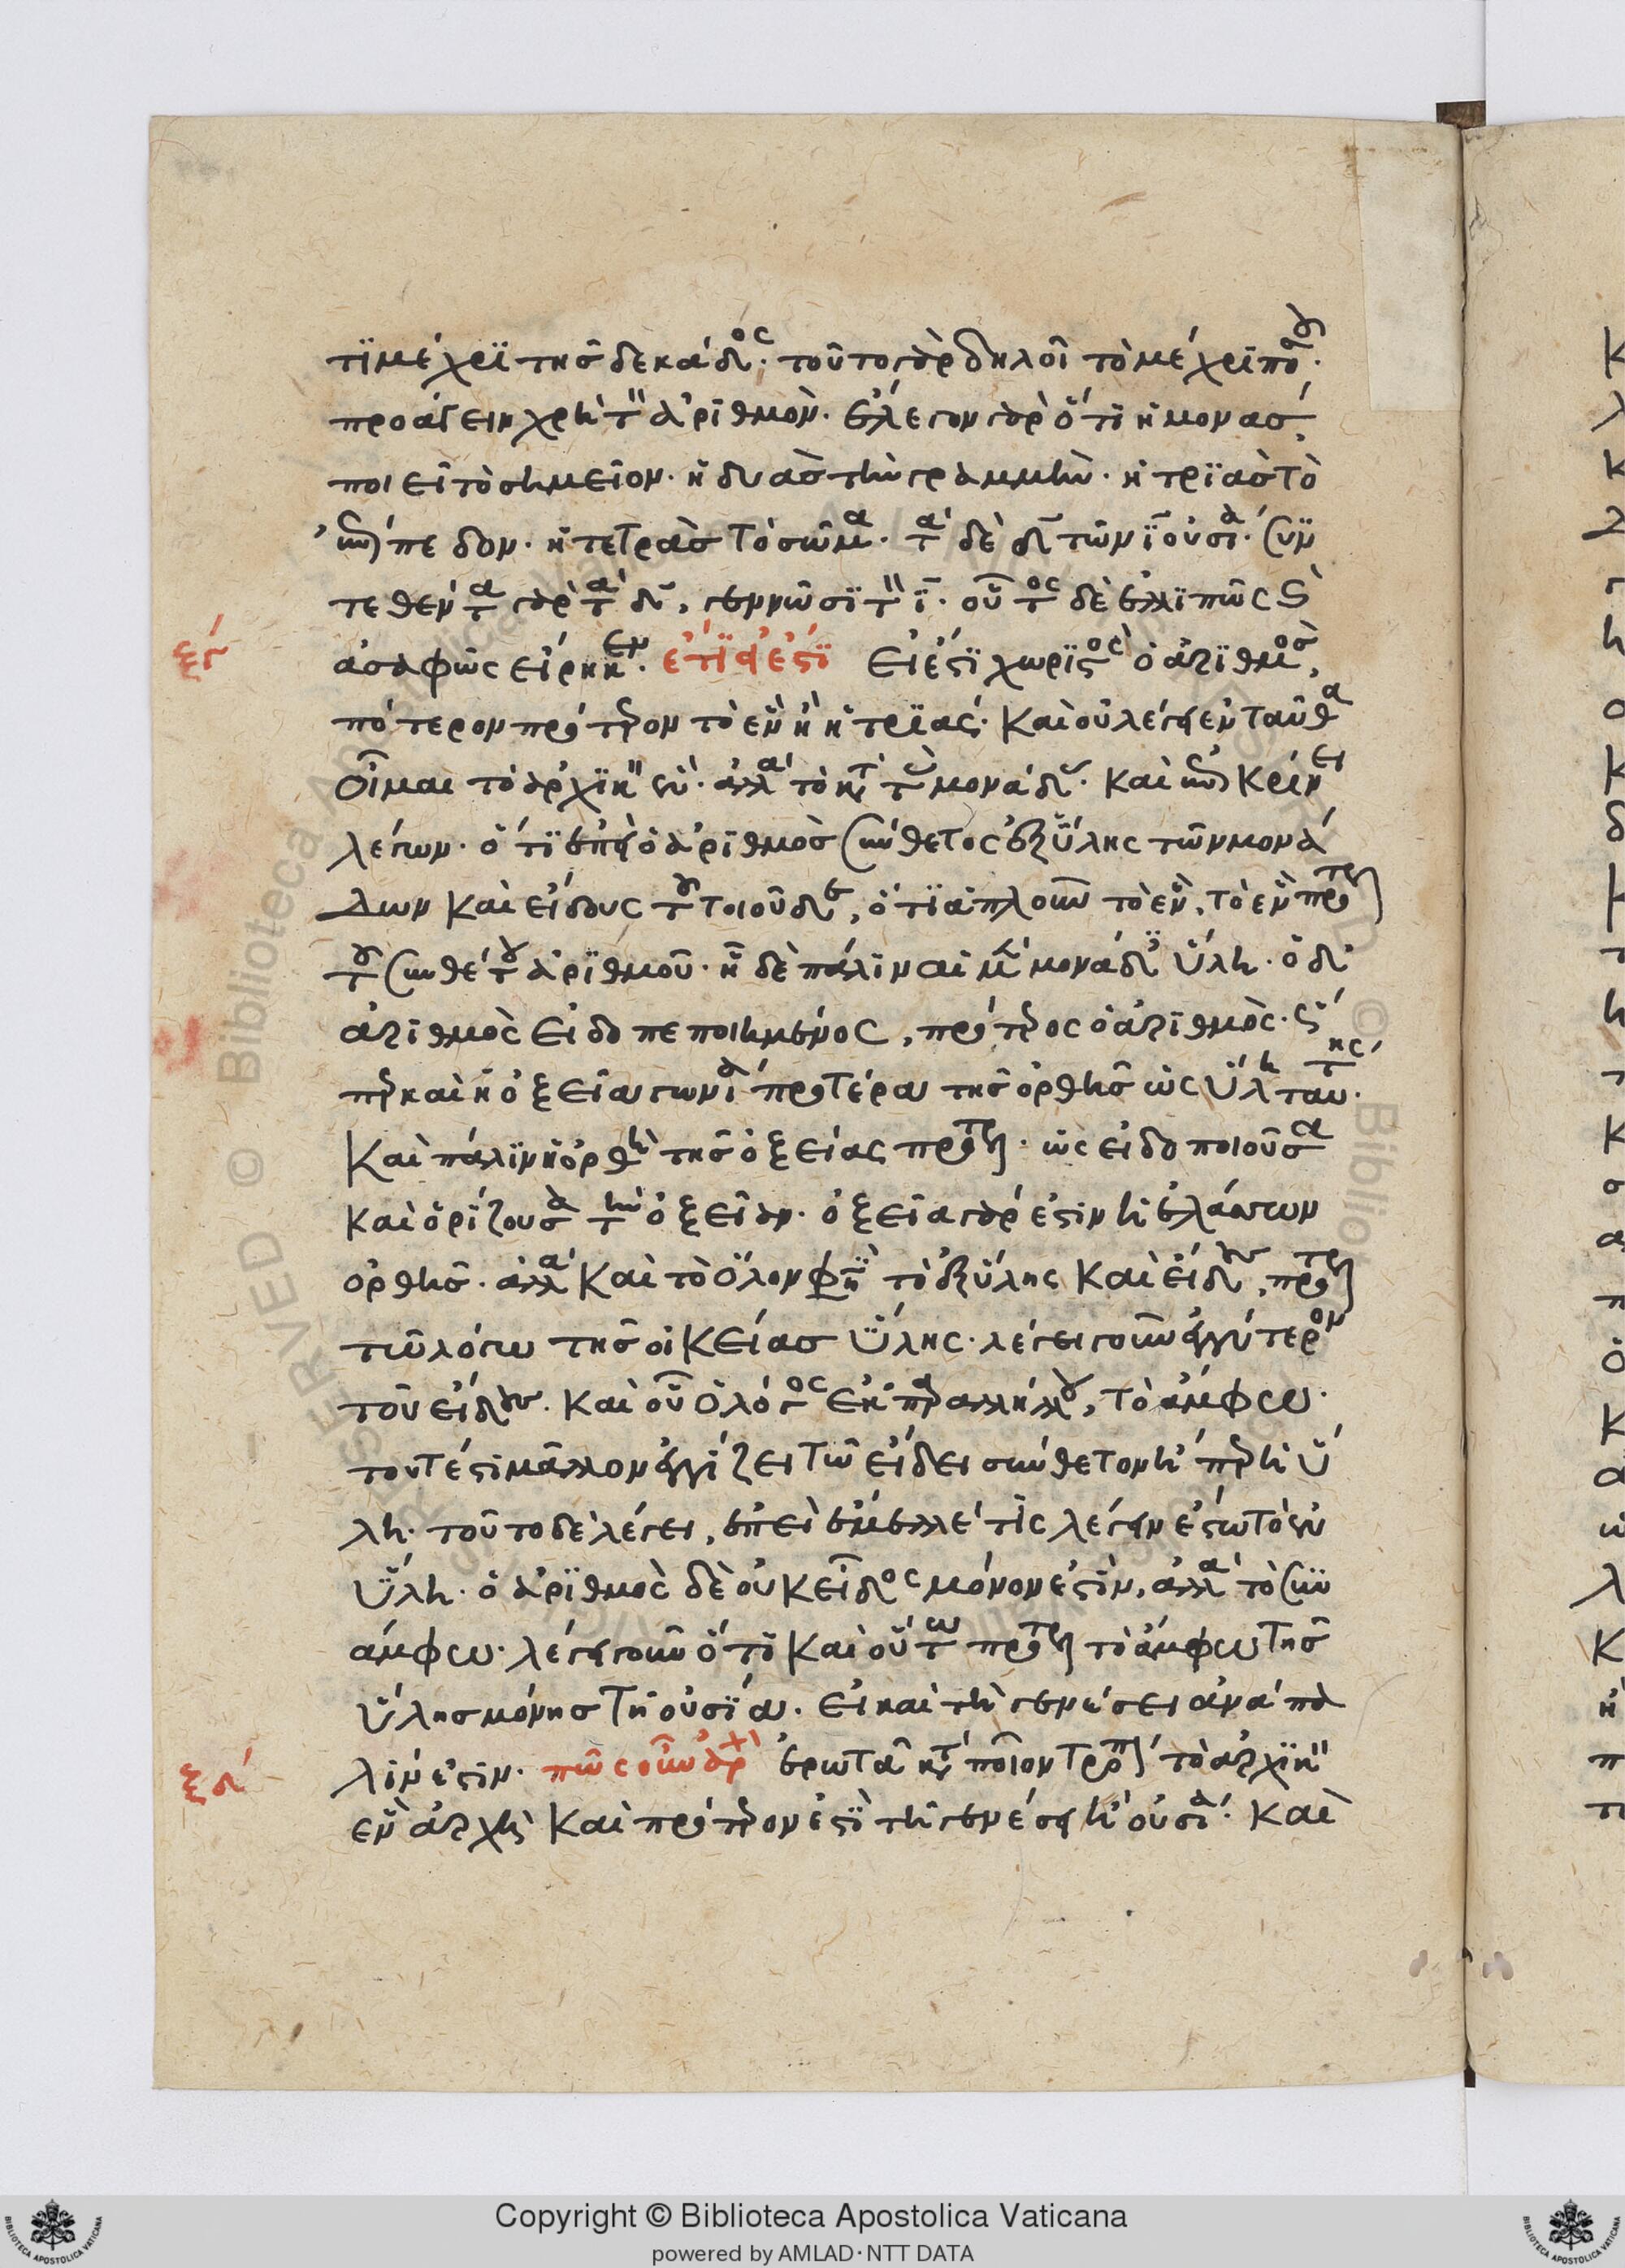 τι μέχρι τῆς δεκάδος. τοῦτο γὰρ δηλοῖ τὸ μέχρι ποῦ.
προάγειν χρὴ τὸν ἀριθμόν. ἔλεγον γὰρ ὅτι ἡ μονάς,
ποιεῖ τὸ σημεῖον. ἡ δυὰς τὴν γραμμὴν. ἡ τριὰς τὸ
ἐπίπεδον. ἡ τετρὰς τὸ σῶμα. τὰ δὲ δ τῶν ι οὐσία. συν
τεθέντα γὰρ τὰ δ, γεννῶσι τὸν ι. οὗτος δὲ ἐλλιπῶς καὶ
ξγ
ἀσαφῶς εἴρηκεν. ἔτι εἰ ἔστι Εἰ ἔστι χωριστὸς ὁ ἀριθμός,
πότερον πρότερον τὸ ἓν ἢ ἡ τριάς. Καὶ οὐ λέγει ἐνταῦθα
οἶμαι τὸ ἀρχικὸν ἕν. ἀλλὰ τὸ κατὰ τῶν μονάδων. καὶ ἐπικρίνει
λέγων. ὅτι ἐπεὶ ὁ ἀριθμὸς σύνθετος ἐξ ὕλης τῶν μονά
δων καὶ εἴδους τοῦ τοιοῦδε, ὅτι ἁπλοῦν τὸ ἓν, τὸ ἓν πρότερον
τοῦ συνθέτου ἀριθμοῦ. ἢ δὲ πάλιν αἱ μὲν μονάδες ὕλη. ὁ δὲ
ἀριθμὸς εἰδοπεποιημένος, πρότερος ὁ ἀριθμός. ὥσ
περ καὶ ἡ ὀξεῖα γωνία προτέρα τῆς ὀρθῆς ὡς ὕλη ταύτης.
Καὶ πάλιν ἡ ὀρθὴ τῆς ὀξείας πρότερον. ὡς εἰδοποιοῦσα
καὶ ὁρίζουσα τὴν ὀξεῖαν. ὀξεῖα γάρ ἐστιν ἡ ἐλάττων
ὀρθῆς. ἀλλὰ καὶ τὸ ὅλον φησὶ τὸ ἐξ ὕλης καὶ εἴδους, πρότερον
τῶ λόγω τῆς οἰκείας ὕλης. λέγει γοῦν ἐγγύτερον
τοῦ εἴδους. καὶ οὗ ὁ λόγος ἐκ παραλλήλου, τὸ ἄμφω.
τουτέστι μᾶλλον ἐγγίζει τῶ εἴδει σύνθετον ἤπερ ἡ ὕ
λη. τοῦτο δὲ λέγει, ἐπεὶ ἔμελλέ τις λέγειν ἔστω τὸ ἓν
ὕλη. ὁ ἀριθμὸς δὲ οὐκ εἶδος μόνον ἐστὶν, ἀλλὰ τὸ συν
άμφω. λέγει γοῦν ὅτι καὶ οὕτω πρότερον τὸ ἄμφω τῆς
ὕλης μόνης τῆ οὐσία. εἰ καὶ τῆ γενέσει ἀνάπα
ξδ
λίν ἐστιν. πῶς οὖν ἀρχὴ ἐρωτᾶ κατὰ ποῖον τρόπον τὸ ἀρχικὸν
ἓν ἀρχὴ καὶ πρότερον ἐστὶ τῆ γενέσει ἢ οὐσία. καὶ
Copyright © Biblioteca Apostolica Vaticana
powered by AMLAD·NTT DATA